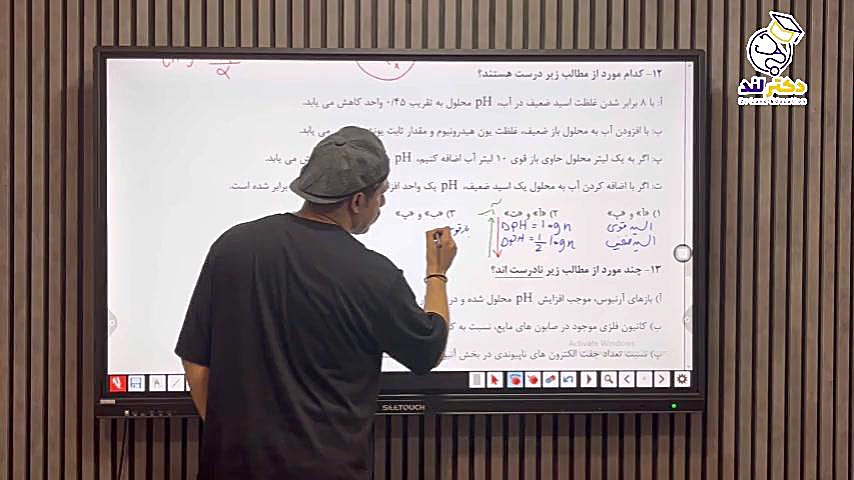 دکتر لند
۱۲- کدام مورد از مطالب زیر درست هستند؟
أ: با ۸ برابر شدن غلظت اسید ضعیف در آب، pH محلول به تقریب ۰/۴۵ واحد کاهش می یابد.
ب: با افزودن آب به محلول باز ضعیف، غلظت یون هیدرونیوم و مقدار ثابت می یابد.
پ: اگر به یک لیتر محلول حاوی باز قوی ۱۰ لیتر آب اضافه کنیم، pH می یابد.
ت: اگر با اضافه کردن آب به محلول یک اسید ضعیف، pH یک واحد برابر شده است.
۱) «أ» و «پ» ۲) «أ» و «ت» ۳) «ب» و «پ»
اسید قوی DpH = log n
اسید ضعیف DpH = 1/2 log n
۱۳- چند مورد از مطالب زیر نادرست اند؟
آ) بازهای آرنیوس، موجب افزایش pH محلول شده و در
ب) کاتیون فلزی موجود در صابون های مایع، نسبت به
پ) نسبت تعداد جفت الکترون های ناپیوندی در بخش
Activate Windows
SEETOUCH